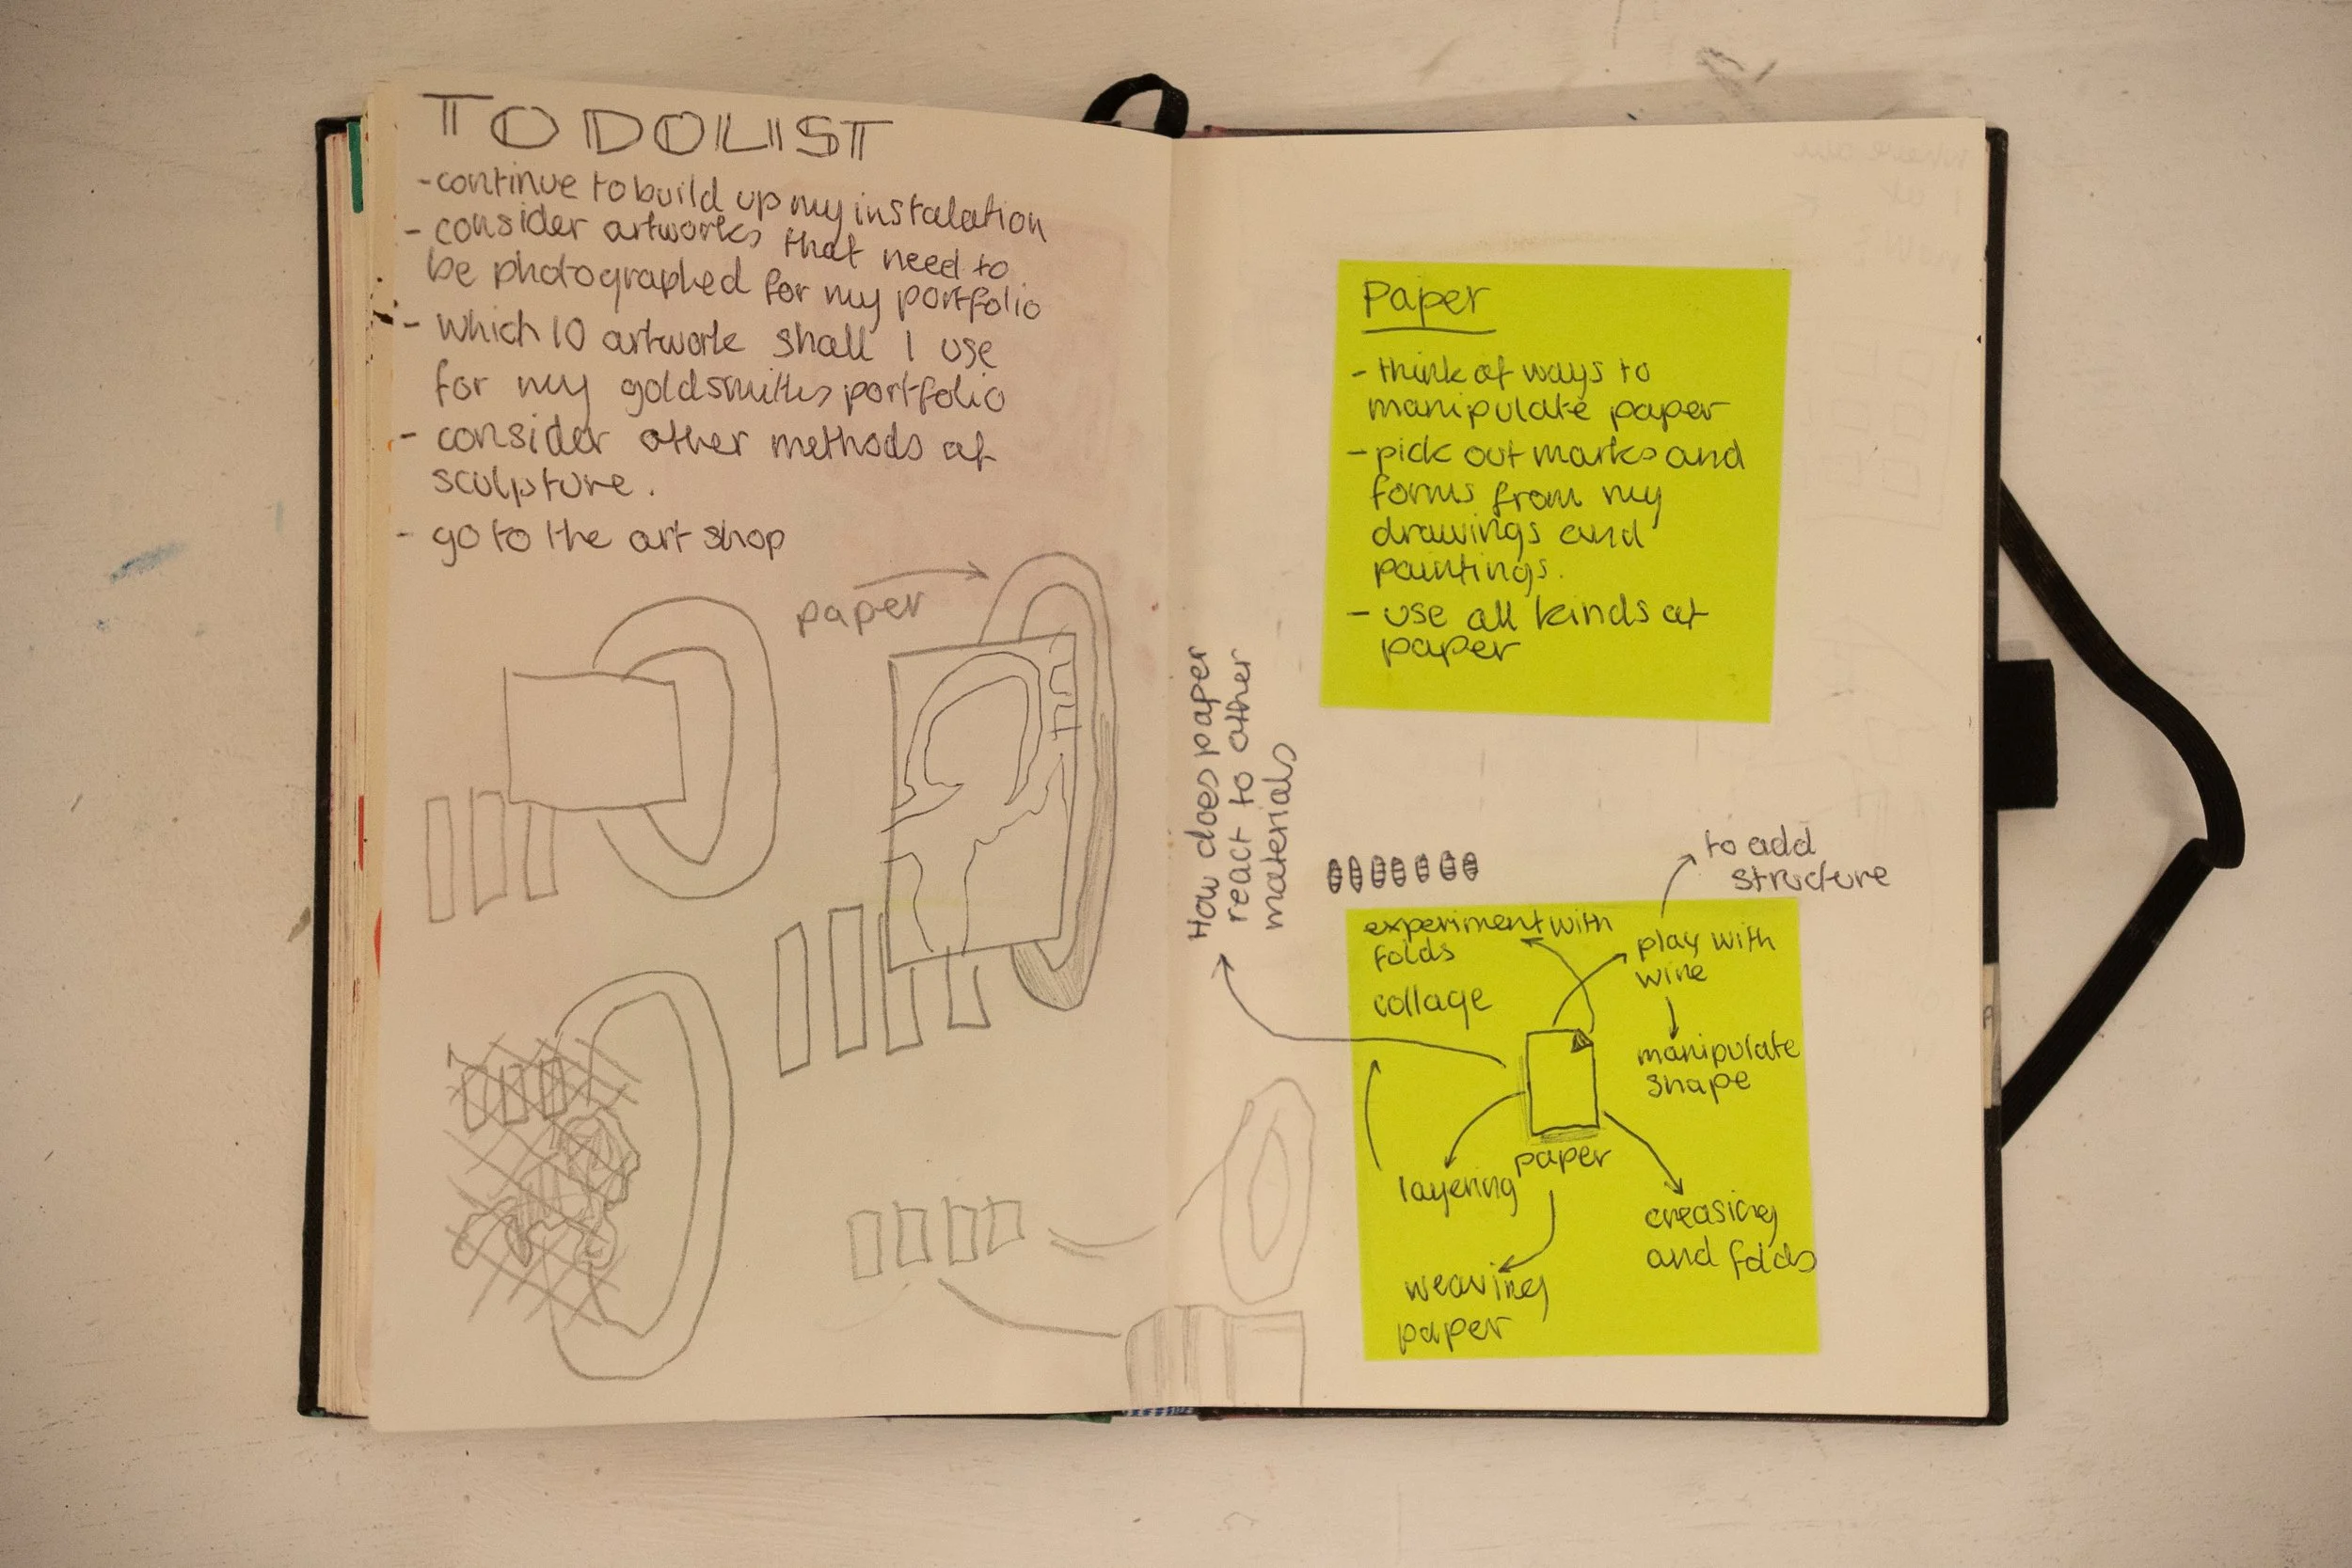 TO DO LIST
-continue to build up my instalation
- consider artworks that need to
be photographed for my portfolio
- which 10 artwork shall I use
for my goldsmiths portfolio
- consider other methods of
sculpture.
- go to the art shop
paper
Paper
- think of ways to
manipulate paper
- pick out marks and
forms from my
drawings and
paintings.
- use all kinds of
paper
How does paper
react to other
materials
to add
structure
experiment with
folds
collage
play with
wire
manipulate
shape
paper
layering
creasing
and folds
weaving
paper